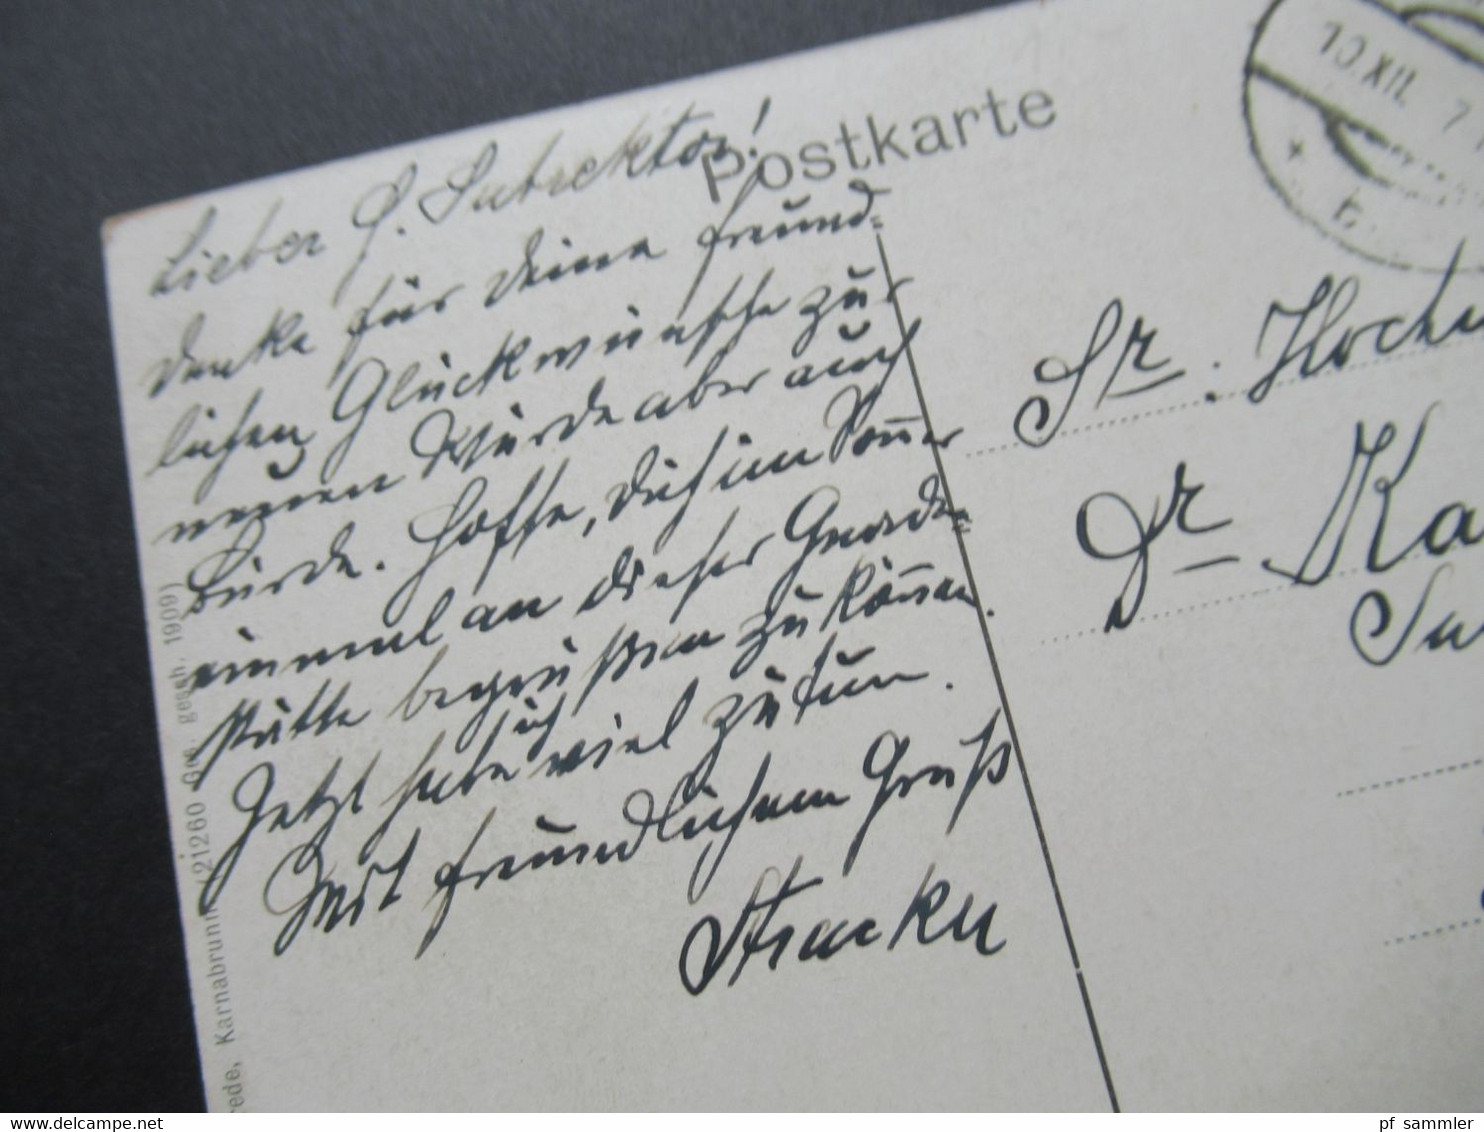 Postkarte
10.XII. 7
Lieber H. Subrektor!
Danke für Deine freund-
lichen Glückwünsche zur
neuen Würde aber auch
Bürde. Hoffe, Dich im Som̅er
einmal an dieser Gnaden-
stätte begrüßen zu kön̅en.
Jetzt habe ich viel zu tun.
Mit freundlichem Gruß
Sr. Hochw
Dr. Ka
Su
rede, Karnabrunn (21260 Ges. gesch. 1909)
pf sammler
delcampe.net